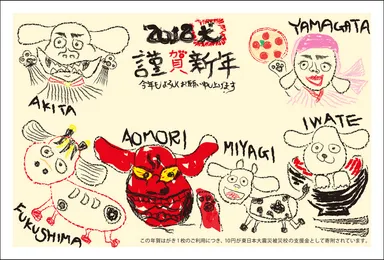 2018犬
謹賀新年
今年もよろしくお願い申し上げます
YAMAGATA
AKITA
AOMORI
MIYAGI
IWATE
FUKUSHIMA
この年賀はがき1枚のご利用につき、10円が東日本大震災被災校の支援金として寄附されています。